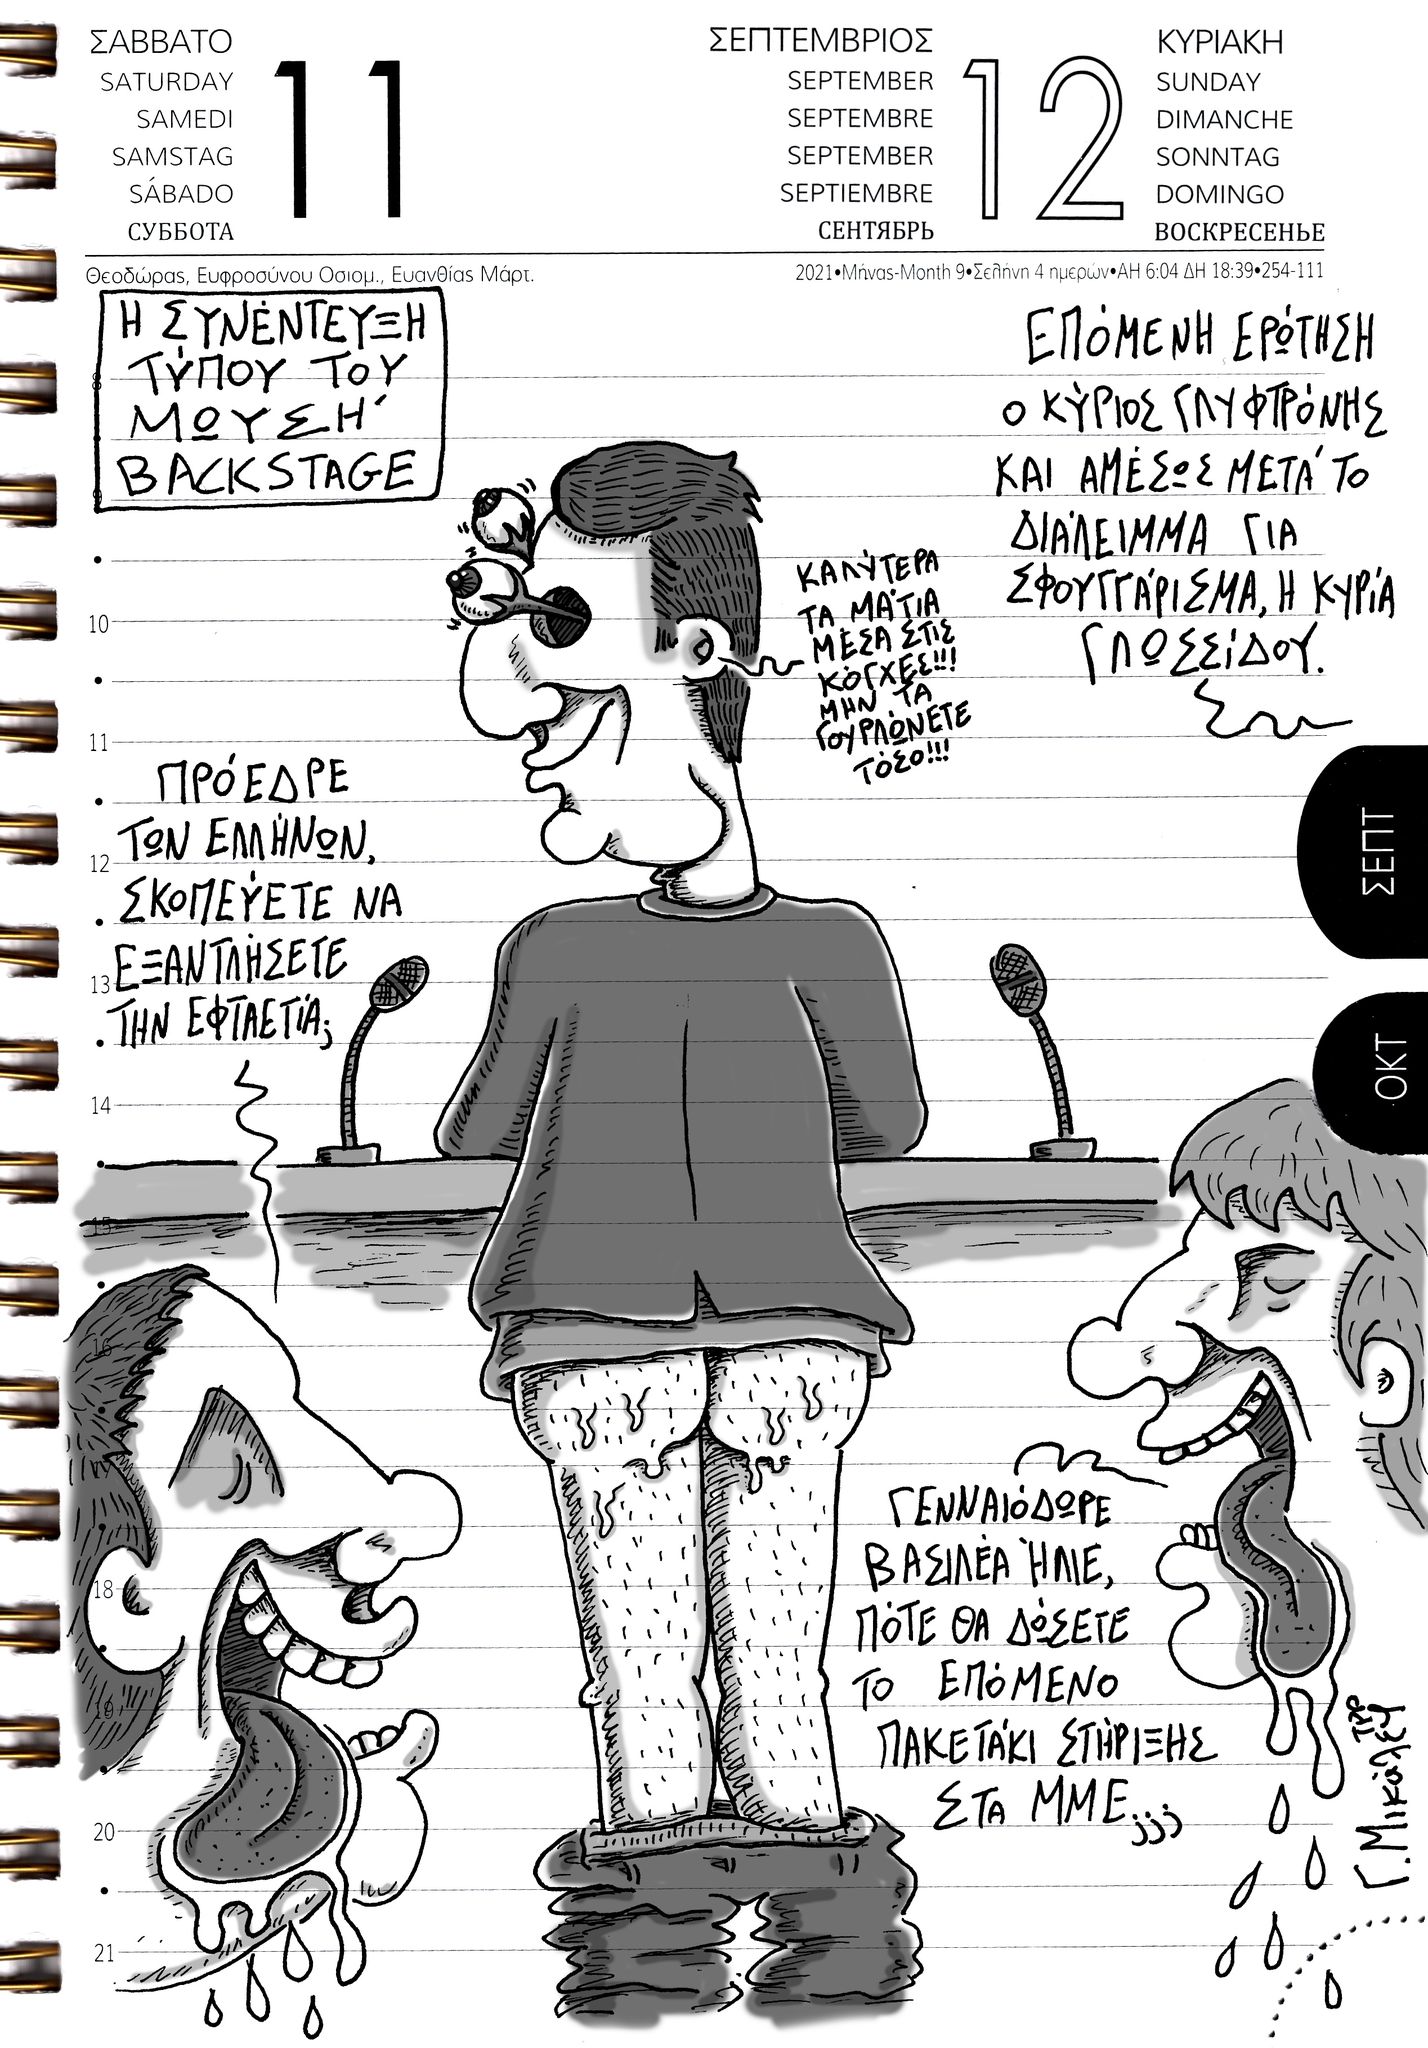 ΣΑΒΒΑΤΟ
SATURDAY
SAMEDI
SAMSTAG
SÁBADO
СУББОТА
11
ΣΕΠΤΕΜΒΡΙΟΣ
SEPTEMBER
SEPTEMBRE
SEPTEMBER
SEPTIEMBRE
СЕНТЯБРЬ
12
ΚΥΡΙΑΚΗ
SUNDAY
DIMANCHE
SONNTAG
DOMINGO
ВОСКРЕСЕНЬЕ
Θεοδώρας, Ευφροσύνου Οσιομ., Ευανθίας Μάρτ.
2021•Μήνας-Month 9•Σελήνη 4 ημερών•ΑΗ 6:04 ΔΗ 18:39•254-111
Η ΣΥΝΕΝΤΕΥΞΗ
ΤΥΠΟΥ ΤΟΥ
ΜΩΥΣΗ
BACKSTAGE
ΕΠΌΜΕΝΗ ΕΡΏΤΗΣΗ
Ο ΚΎΡΙΟΣ ΓΛΥΦΤΡΌΝΗΣ
ΚΑΙ ΑΜΈΣΩΣ ΜΕΤΆ ΤΟ
ΔΙΆΛΕΙΜΜΑ ΓΙΑ
ΣΦΟΥΓΓΆΡΙΣΜΑ, Η ΚΥΡΊΑ
ΓΛΩΣΣΊΔΟΥ.
ΚΑΛΎΤΕΡΑ
ΤΑ ΜΆΤΙΑ
ΜΈΣΑ ΣΤΙΣ
ΚΌΓΧΕΣ!!!
ΜΗΝ ΤΑ
ΓΟΥΡΛΏΝΕΤΕ
ΤΌΣΟ!!!
ΠΡΌΕΔΡΕ
ΤΩΝ ΕΛΛΉΝΩΝ,
ΣΚΟΠΕΎΕΤΕ ΝΑ
ΕΞΑΝΤΛΉΣΕΤΕ
ΤΗΝ ΕΦΤΑΕΤΊΑ;
ΓΕΝΝΑΙΌΔΩΡΕ
ΒΑΣΙΛΈΑ ΉΛΙΕ,
ΠΌΤΕ ΘΑ ΔΏΣΕΤΕ
ΤΟ ΕΠΌΜΕΝΟ
ΠΑΚΕΤΆΚΙ ΣΤΉΡΙΞΗΣ
ΣΤΑ ΜΜΕ;;;
ΣΕΠΤ
ΟΚΤ
10
11
12
13
14
15
16
17
18
19
20
21
Γ. Μικάλεψ